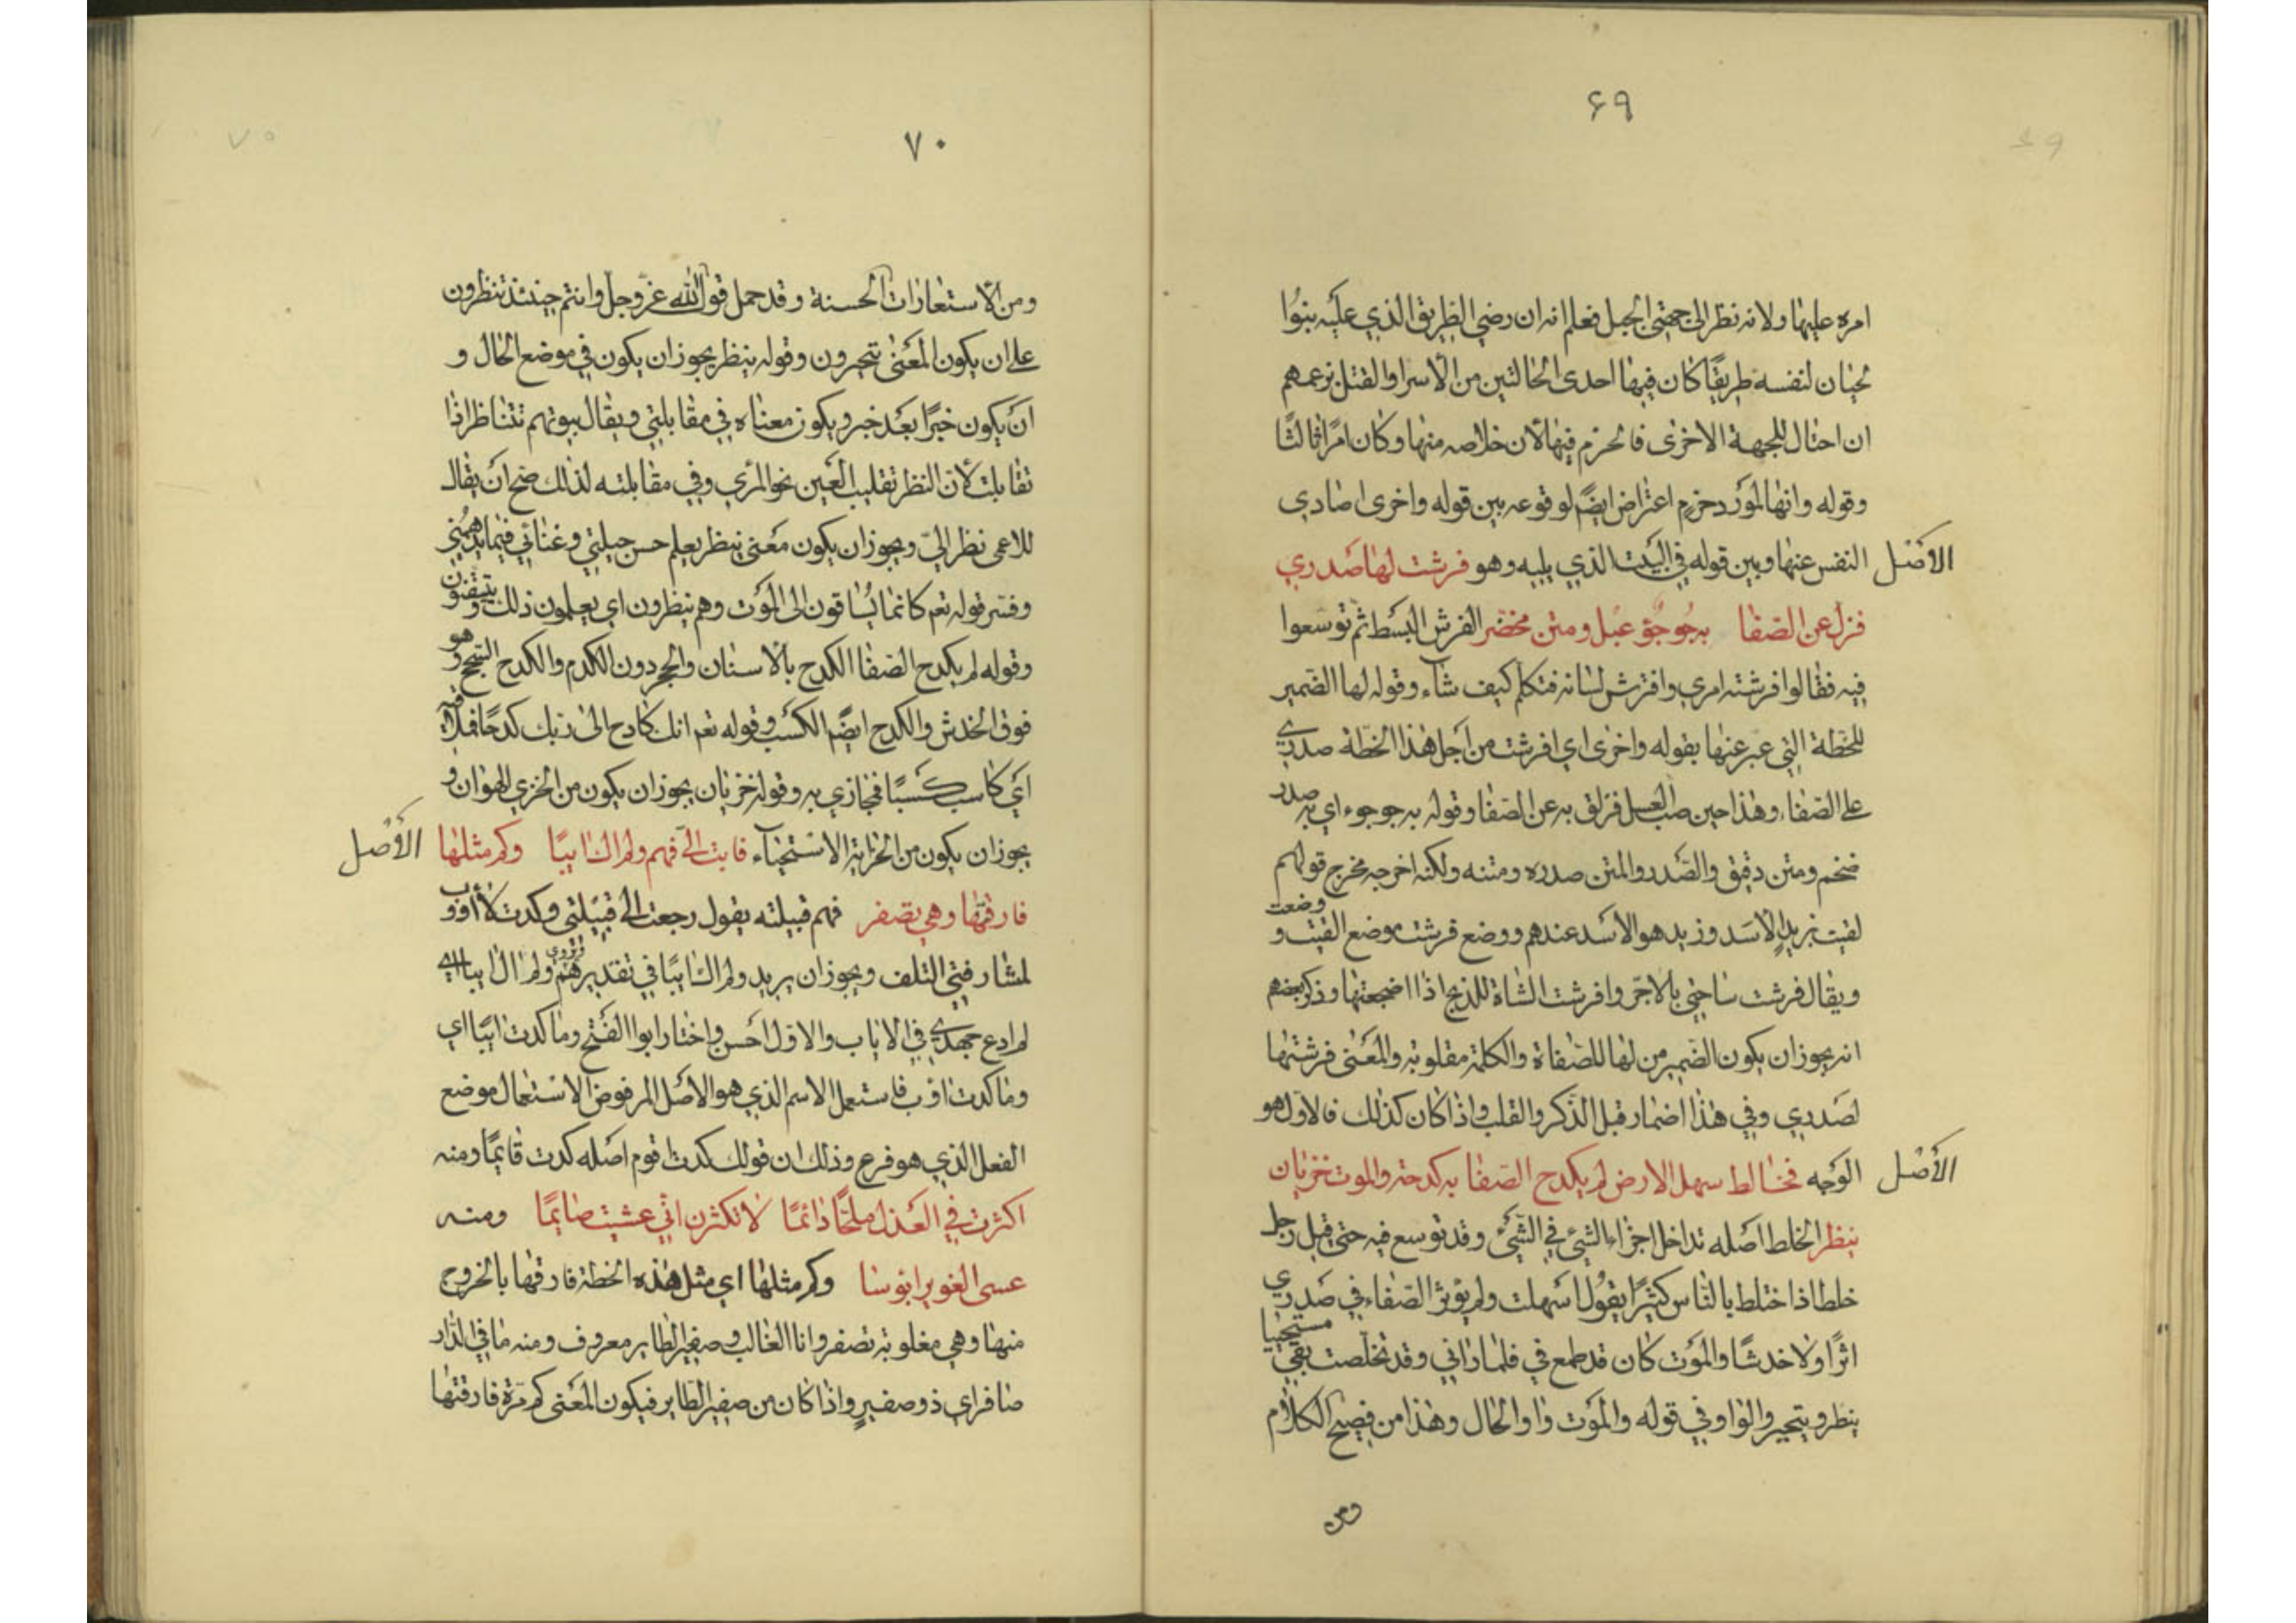 ۶۹
امره عليها ولانه نظر الى جهتي الجبل فعلم انه ان رضي الطريق الذي عليه بنوا
لحيان لنفسه طريقًا كان فيها احدى الحالتين من الأسر او القتل بزعمهم
ان احتال للجهة الاخرى فالحزم فيها لأن خلاصه منها وكان امرًا ثالثًا
وقوله وانها لمورد حزم اعتراض ايضًا لوقوعه بين قوله واخرى اصادي
الاصل النفس عنها وبين قوله في البيت الذي يليه وهو فرشت لها صدري
فزل عن الصفا به جؤجؤ عبل ومتن مخصر الفرش البسط ثم توسعوا
فيه فقالوا فرشته امري وافترش لسانه فتكلم كيف شاء وقوله لها الضمير
للخطة التي عبر عنها بقوله واخرى اي فرشت من اجل هذا الخطة صدري
على الصفا وهذا حين صب العسل فزلق به عن الصفا وقوله به جوجوء اي به صدر
ضخم ومتن دقيق والصدر والمتن صدره ومتنه ولكنه اخرجه مخرج قولهم
لقيت بزيدٍ الاسد وزيد هو الاسد عندهم ووضع فرشت موضع القيت و وضعت
ويقال فرشت ساحتي بالاجر وافرشت الشاة للذبح اذا اضجعتها وذكر بعضهم
انه يجوز ان يكون الضمير من لها للصفاة والكلمة مقلوبة والمعنى فرشتها
لصدري وفي هذا اضمار قبل الذكر والقلب واذا كان كذلك فالاول هو
الأصل الوجه فخالط سهل الارض لم يكدح الصفا به كدحة والموت خزيان
ينظر الخلط اصله تداخل اجزاء الشئ في الشئ وقد توسع فيه حتى قيل رجل
خلط اذا اختلط بالناس كثيرًا يقول اسهلت ولم يؤثر الصفاء في صدري
اثرًا ولا خدشًا والموت كان قد طمع في فلما راني وقد تخلصت بقي مستحييا
ينظر ويتحير والواو في قوله والموت واو الحال وهذا من فصيح الكلام
ومن
۷۰
ومن الاستعارات الحسنة وقد حمل قول الله عز وجل وانتم حينئذ تنظرون
على ان يكون المعنى تتحيرون وقوله ينظر يجوز ان يكون في موضع الحال و
ان يكون خبرًا بعد خبر ويكون معناه في مقابلتي ويقال بيوتهم تتناظر اذا
تقابلت لأن النظر تقليب العين نحو المرئي وفي مقابلته لذلك صح ان يقال
للاعمى نظر الي ويجوز ان يكون معنى ينظر يعلم حسن حيلتي وغنائي فيما يدهمني
وفسر قوله تعم كانما يساقون الى الموت وهم ينظرون اي يعلمون ذلك ويتيقنون
وقوله لم يكدح الصفا الكدح بالاسنان والحجر دون الكدم والكدح السحج وهو
فوق الخدش والكدح ايضًا الكسب وقوله تعم انك كادح الى ربك كدحًا فملاقيه
أي كاسب كسبًا فمجازي به وقوله خزيان يجوز ان يكون من الخزي الهوان و
يجوز ان يكون من الخزاية الاستحياء فابت الى فهم ولم اك ايبًا وكم مثلها الأصل
فارقتها وهي تصفر فهم قبيلته يقول رجعت الى قبيلتي وكدت لا أؤوب
لمشارفتي التلف ويجوز ان يريد ولم اك ايبًا في تقديرهم ويروى ولم ال ايبا اي
لم ادع جهدي في الاياب والاول احسن واختار ابو الفتح وما كدت ايبًا اي
وما كدت اوب فاستعمل الاسم الذي هو الاصل المرفوض الاستعمال موضع
الفعل الذي هو فرع وذلك ان قولك كدت اقوم اصله كدت قايمًا ومنه
اكثرت في العذل ملحًا دائمًا لا تكثرن اني عشيت صايمًا ومنه
عسى الغوير ابوسا وكم مثلها اي مثل هذه الخطة فارقتها بالخروج
منها وهي مغلوبة تصفر وانا الغالب وصفير الطاير معروف ومنه ما في الدار
صافر اي ذو صفيرٍ واذا كان من صفير الطاير فيكون المعنى كم مرة فارقتها